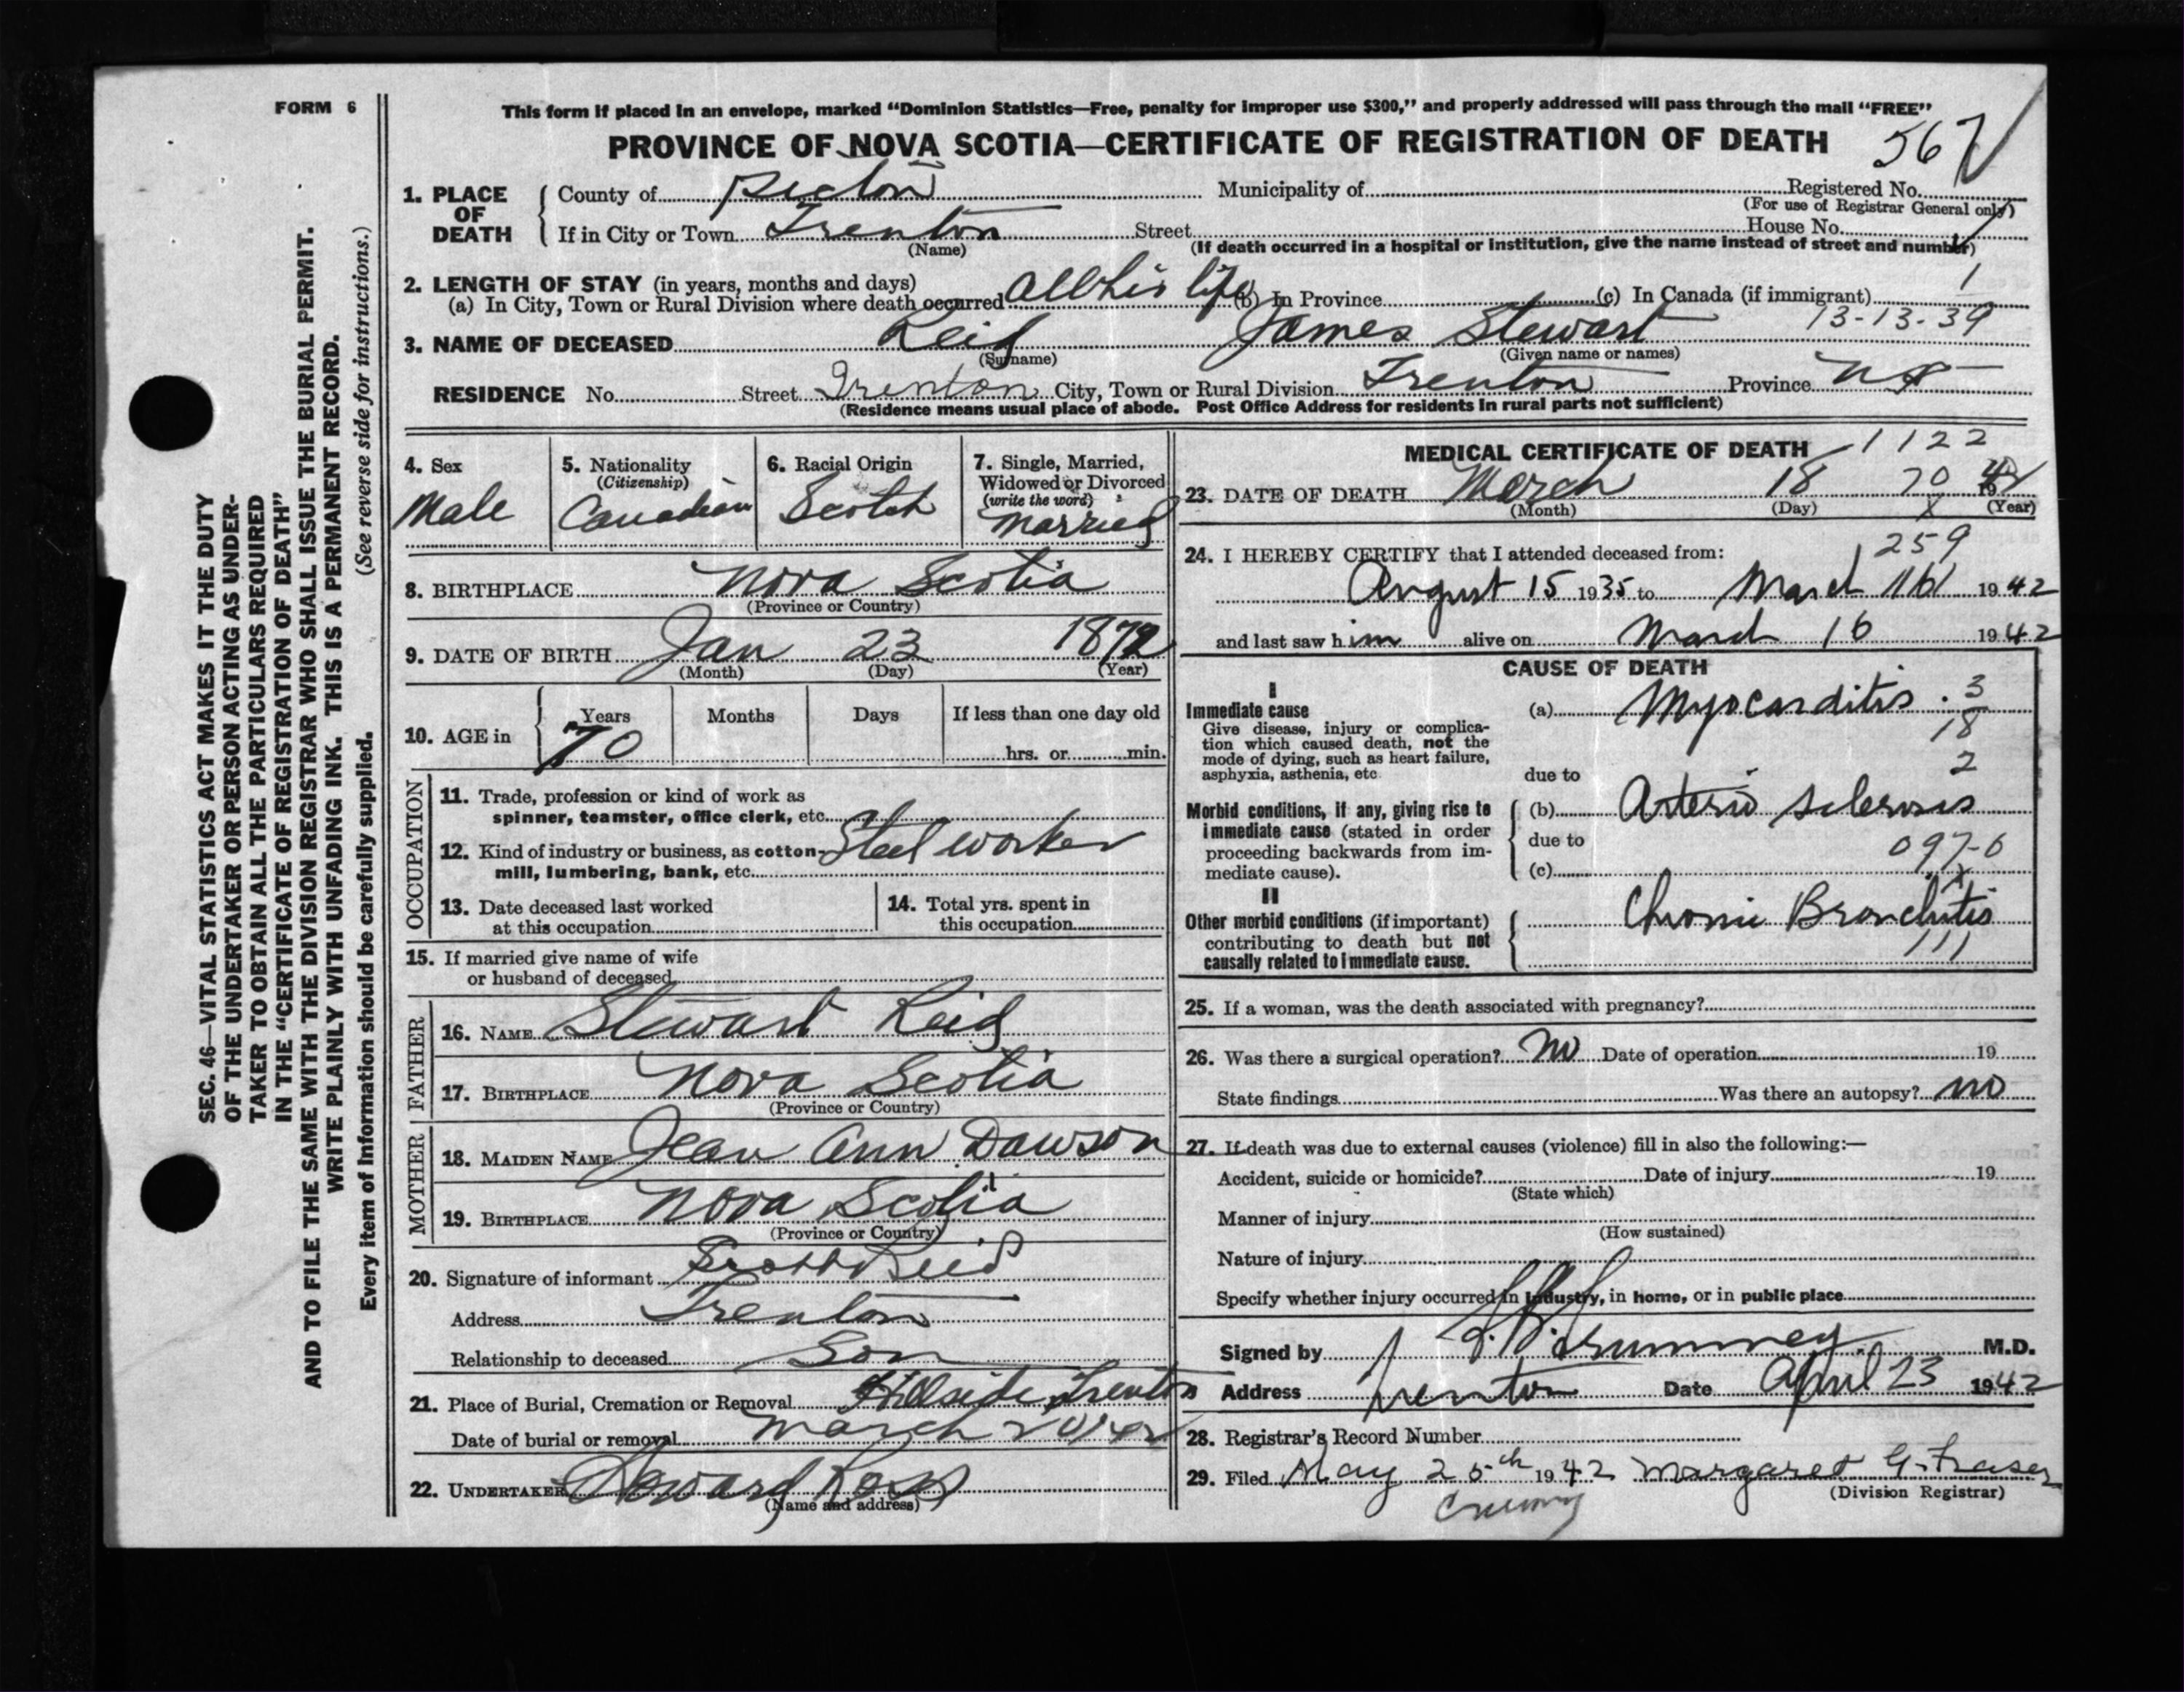 FORM 6
This form if placed in an envelope, marked "Dominion Statistics—Free, penalty for improper use $300," and properly addressed will pass through the mail "FREE"
PROVINCE OF NOVA SCOTIA—CERTIFICATE OF REGISTRATION OF DEATH
567
1. PLACE OF DEATH
County of Pictou Municipality of Registered No.
(For use of Registrar General only)
If in City or Town Trenton Street House No.
(Name) (If death occurred in a hospital or institution, give the name instead of street and number)
2. LENGTH OF STAY (in years, months and days)
(a) In City, Town or Rural Division where death occurred All his life (b) In Province (c) In Canada (if immigrant) 1
13-13-39
3. NAME OF DECEASED Reid James Stewart
(Surname) (Given name or names)
RESIDENCE No. Street Trenton City, Town or Rural Division Trenton Province NS
(Residence means usual place of abode. Post Office Address for residents in rural parts not sufficient)
4. Sex
Male
5. Nationality
(Citizenship)
Canadian
6. Racial Origin
Scotch
7. Single, Married,
Widowed or Divorced
(write the word)
Married
8. BIRTHPLACE Nova Scotia
(Province or Country)
9. DATE OF BIRTH Jan 23 1872
(Month) (Day) (Year)
10. AGE in
Years Months Days If less than one day old
70 hrs. or min.
OCCUPATION
11. Trade, profession or kind of work as
spinner, teamster, office clerk, etc.
12. Kind of industry or business, as cotton- Steel worker
mill, lumbering, bank, etc.
13. Date deceased last worked
at this occupation
14. Total yrs. spent in
this occupation
15. If married give name of wife
or husband of deceased
FATHER
16. NAME Stewart Reid
17. BIRTHPLACE Nova Scotia
(Province or Country)
MOTHER
18. MAIDEN NAME Jean Ann Dawson
19. BIRTHPLACE Nova Scotia
(Province or Country)
20. Signature of informant Scott Reid
Address Trenton
Relationship to deceased Son
21. Place of Burial, Cremation or Removal Hillside Trenton
Date of burial or removal March 20/42
22. UNDERTAKER Howard Ross
(Name and address)
MEDICAL CERTIFICATE OF DEATH 1122
23. DATE OF DEATH March 18 70 19
(Month) (Day) (Year)
24. I HEREBY CERTIFY that I attended deceased from: 259
August 15 1935 to March 16 1942
and last saw him alive on March 16 1942
CAUSE OF DEATH
I
Immediate cause
Give disease, injury or complica-
tion which caused death, not the
mode of dying, such as heart failure,
asphyxia, asthenia, etc.
(a) Myocarditis 3
18
2
due to
Morbid conditions, if any, giving rise to
immediate cause (stated in order
proceeding backwards from im-
mediate cause).
(b) Arterio sclerosis
due to 097-0
(c)
II
Other morbid conditions (if important)
contributing to death but not
causally related to immediate cause.
Chronic Bronchitis
111
25. If a woman, was the death associated with pregnancy?
26. Was there a surgical operation? No Date of operation 19
State findings Was there an autopsy? no
27. If death was due to external causes (violence) fill in also the following:—
Accident, suicide or homicide? Date of injury 19
(State which)
Manner of injury
(How sustained)
Nature of injury
Specify whether injury occurred in industry, in home, or in public place
Signed by M.D.
Address Trenton Date April 23 1942
28. Registrar's Record Number
29. Filed May 25th 1942 Margaret G. Fraser
(Division Registrar)
SEC. 46—VITAL STATISTICS ACT MAKES IT THE DUTY
OF THE UNDERTAKER OR PERSON ACTING AS UNDER-
TAKER TO OBTAIN ALL THE PARTICULARS REQUIRED
IN THE "CERTIFICATE OF REGISTRATION OF DEATH"
AND TO FILE THE SAME WITH THE DIVISION REGISTRAR WHO SHALL ISSUE THE BURIAL PERMIT.
WRITE PLAINLY WITH UNFADING INK. THIS IS A PERMANENT RECORD.
Every item of information should be carefully supplied. (See reverse side for instructions.)